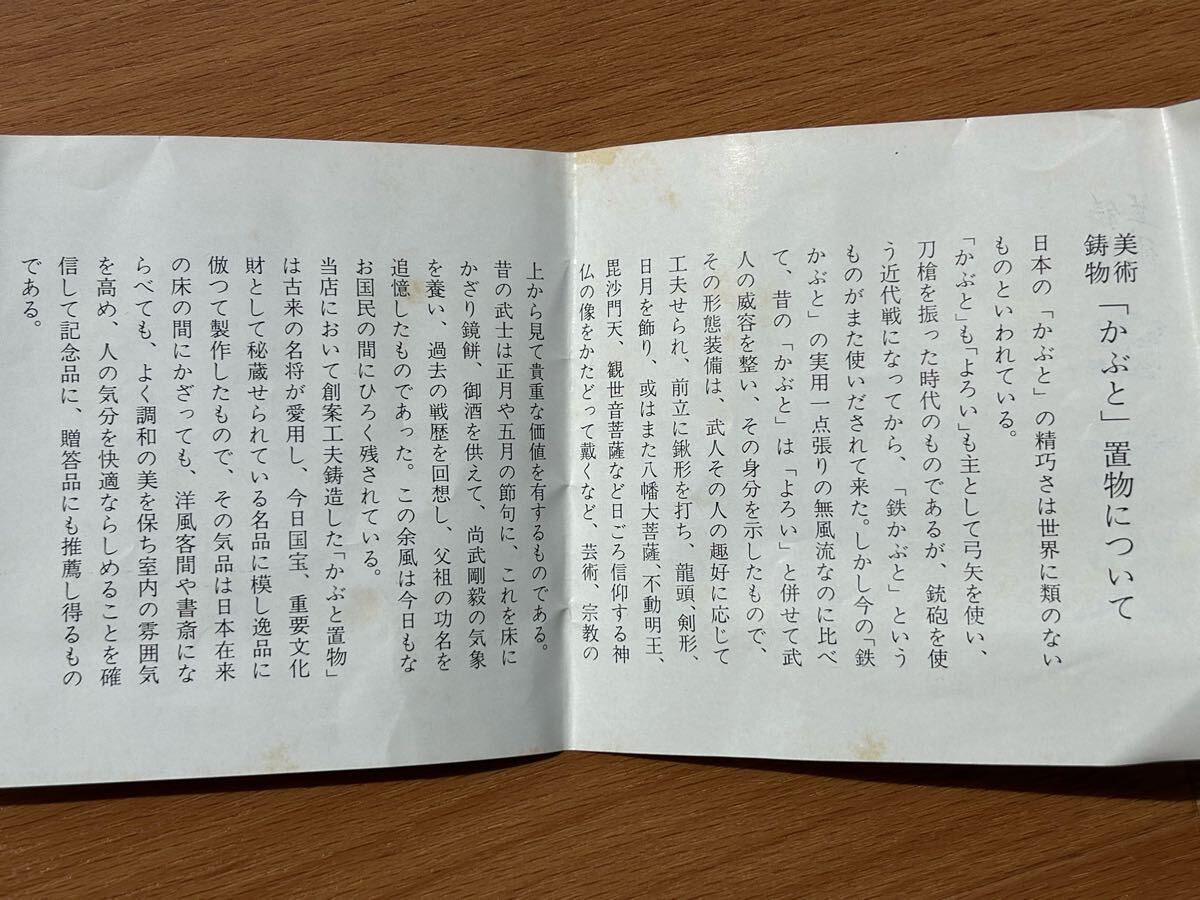 美術
鋳物「かぶと」置物について
日本の「かぶと」の精巧さは世界に類のない
ものといわれている。
「かぶと」も「よろい」も主として弓矢を使い、
刀槍を振った時代のものであるが、銃砲を使
う近代戦になってから、「鉄かぶと」という
ものがまた使いだされて来た。しかし今の「鉄
かぶと」の実用一点張りの無風流なのに比べ
て、昔の「かぶと」は「よろい」と併せて武
人の威容を整い、その身分を示したもので、
その形態装備は、武人その人の趣好に応じて
工夫せられ、前立に鍬形を打ち、龍頭、剣形、
日月を飾り、或はまた八幡大菩薩、不動明王、
毘沙門天、観世音菩薩など日ごろ信仰する神
仏の像をかたどって戴くなど、芸術、宗教の
上から見て貴重な価値を有するものである。
昔の武士は正月や五月の節句に、これを床に
かざり鏡餅、御酒を供えて、尚武剛毅の気象
を養い、過去の戦歴を回想し、父祖の功名を
追憶したものであった。この余風は今日もな
お国民の間にひろく残されている。
当店において創案工夫鋳造した「かぶと置物」
は古来の名将が愛用し、今日国宝、重要文化
財として秘蔵せられている名品に模し逸品に
倣つて製作したもので、その気品は日本在来
の床の間にかざっても、洋風客間や書斎にな
らべても、よく調和の美を保ち室内の雰囲気
を高め、人の気分を快適ならしめることを確
信して記念品に、贈答品にも推薦し得るもの
である。